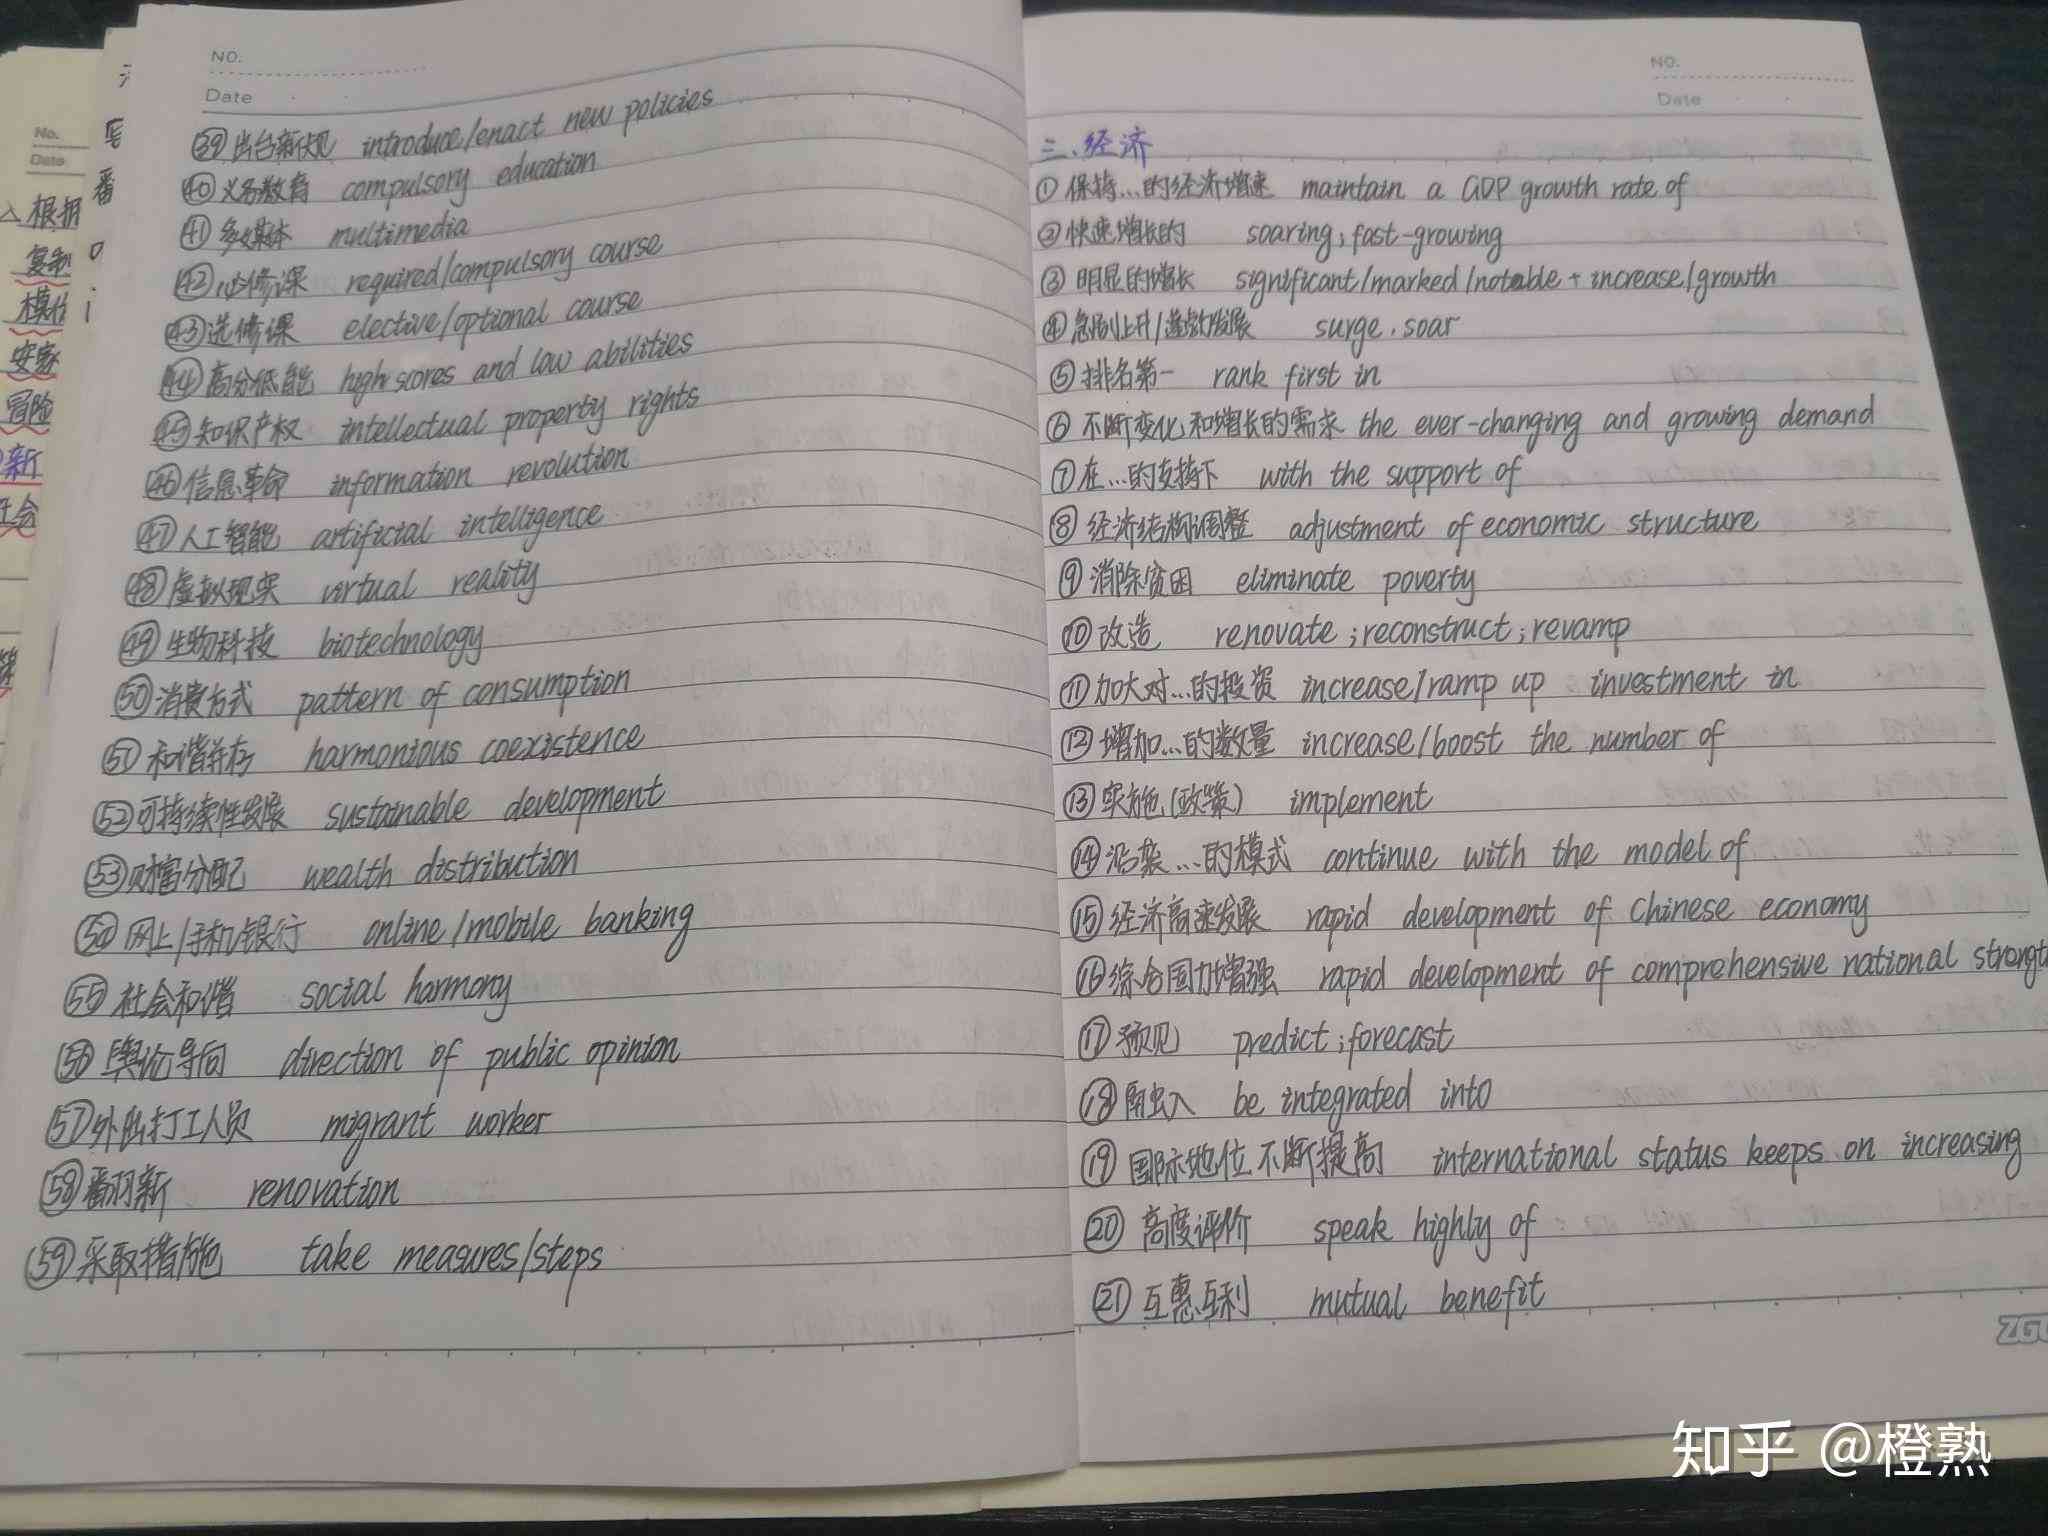 No.
Date
根据
复制
模仿
安家
冒险
新
社会
写
番
NO.
Date
㊴出台新规 introduce/enact new policies
㊵义务教育 compulsory education
㊶多媒体 multimedia
㊷必修课 required/compulsory course
㊸选修课 elective/optional course
㊹高分低能 high scores and low abilities
㊺知识产权 intellectual property rights
㊻信息革命 information revolution
㊼人工智能 artificial intelligence
㊽虚拟现实 virtual reality
㊾生物科技 biotechnology
㊿消费方式 pattern of consumption
(51)和谐并存 harmonious coexistence
(52)可持续性发展 sustainable development
(53)财富分配 wealth distribution
(54)网上/手机银行 online/mobile banking
(55)社会和谐 social harmony
(56)舆论导向 direction of public opinion
(57)外出打工人员 migrant worker
(58)翻新 renovation
(59)采取措施 take measures/steps
NO.
Date
三.经济
①保持...的经济增速 maintain a GDP growth rate of
②快速增长的 soaring;fast-growing
③明显的增长 significant/marked/notable + increase/growth
④急剧上升/蓬勃发展 surge.soar
⑤排名第一 rank first in
⑥不断变化和增长的需求 the ever-changing and growing demand
⑦在...的支持下 with the support of
⑧经济结构调整 adjustment of economic structure
⑨消除贫困 eliminate poverty
⑩改造 renovate;reconstruct;revamp
⑪加大对...的投资 increase/ramp up investment in
⑫增加...的数量 increase/boost the number of
⑬实施(政策) implement
⑭沿袭...的模式 continue with the model of
⑮经济高速发展 rapid development of Chinese economy
⑯综合国力增强 rapid development of comprehensive national strengt
⑰预见 predict;forecast
⑱融入 be integrated into
⑲国际地位不断提高 international status keeps on increasing
⑳高度评价 speak highly of
㉑互惠互利 mutual benefit
知乎 @橙熟